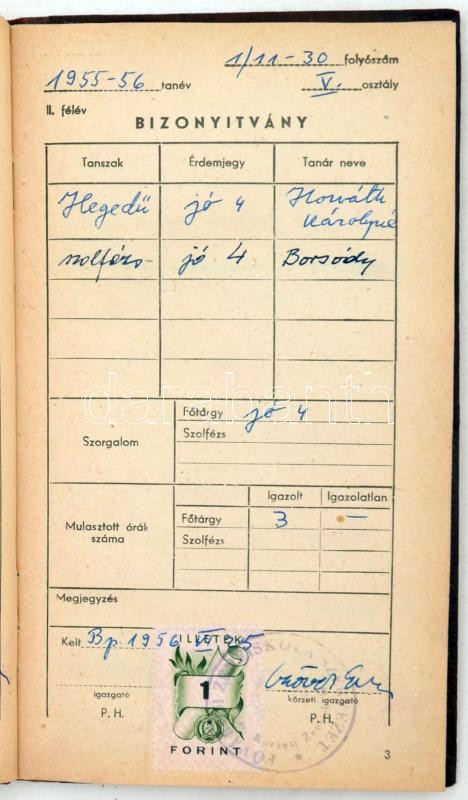 1/11-30 folyószám
1955-56 tanév V. osztály
II. félév
BIZONYITVÁNY
Tanszak Érdemjegy Tanár neve
Hegedű jó 4 Horváth Károlyné
szolfézs jó 4 Borsódy
darabanth
Szorgalom
Főtárgy jó 4
Szolfézs
Mulasztott órák száma
Igazolt Igazolatlan
Főtárgy 3 –
Szolfézs
Megjegyzés
Kelt Bp. 1956 VI 5
ILLETÉK
1
FORINT
igazgató
P. H.
körzeti igazgató
P. H.
3